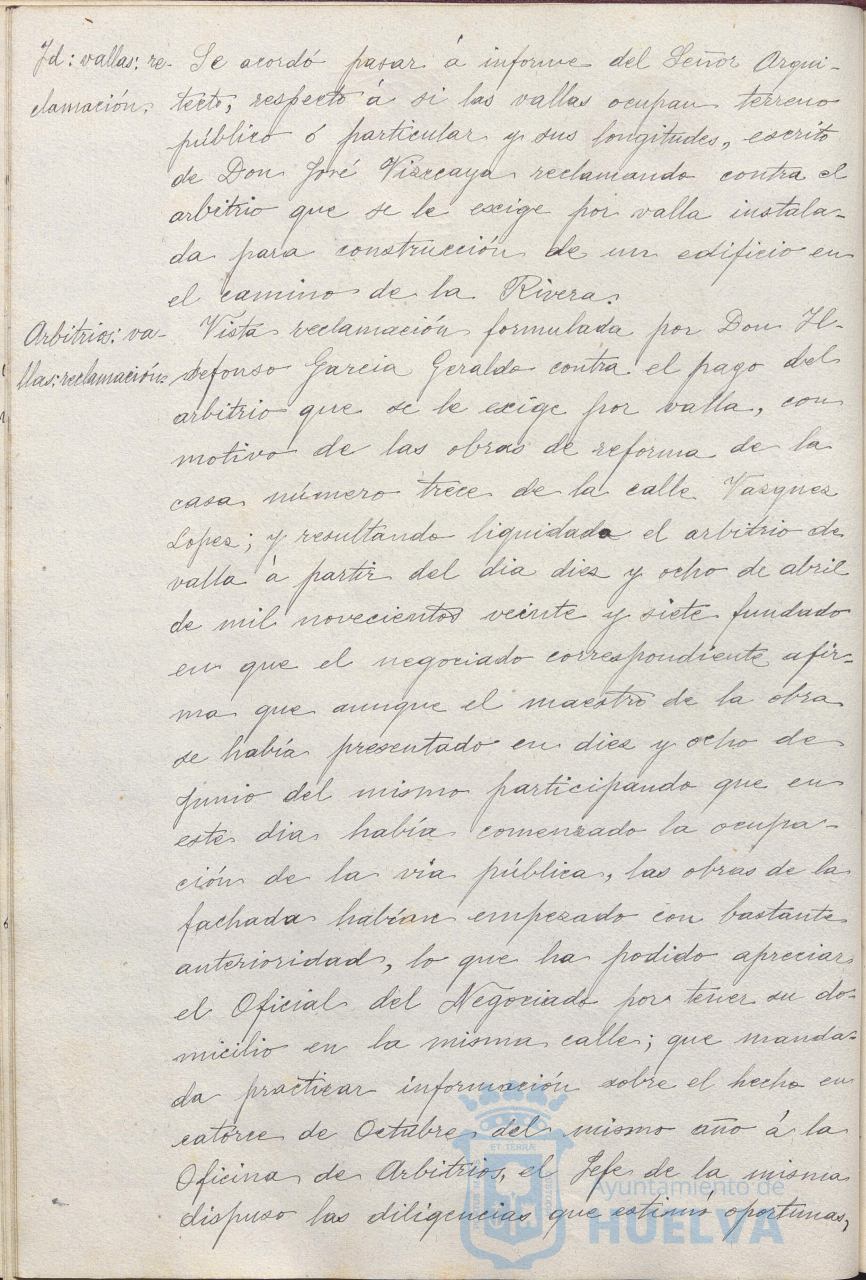 Id: vallas: re-
clamación.
Se acordó pasar á informe del Señor Arqui-
tecto, respecto á si las vallas ocupan terreno
público ó particular y sus longitudes, escrito
de Don José Vizcaya reclamando contra el
arbitrio que se le exige por valla instala-
da para construcción de un edificio en
el camino de la Rivera.
Arbitrio: va-
llas: reclamación=
Vista reclamación formulada por Don Il-
defonso Garcia Geraldo contra el pago del
arbitrio que se le exige por valla, con
motivo de las obras de reforma de la
casa número trece de la calle Vazquez
Lopez; y resultando liquidado el arbitrio de
valla á partir del dia diez y ocho de abril
de mil novecientos veinte y siete fundado
en que el negociado correspondiente afir-
ma que aunque el maestro de la obra
se había presentado en diez y ocho de
Junio del mismo participando que en
este dia había comenzado la ocupa-
ción de la vía pública, las obras de la
fachada habían empezado con bastante
anterioridad, lo que ha podido apreciar
el Oficial del Negociado por tener su do-
micilio en la misma calle; que manda-
da practicar información sobre el hecho en
catorce de Octubre del mismo año á la
Oficina de Arbitrios, el Jefe de la misma
dispuso las diligencias que estimó oportunas,
Ayuntamiento de
HUELVA